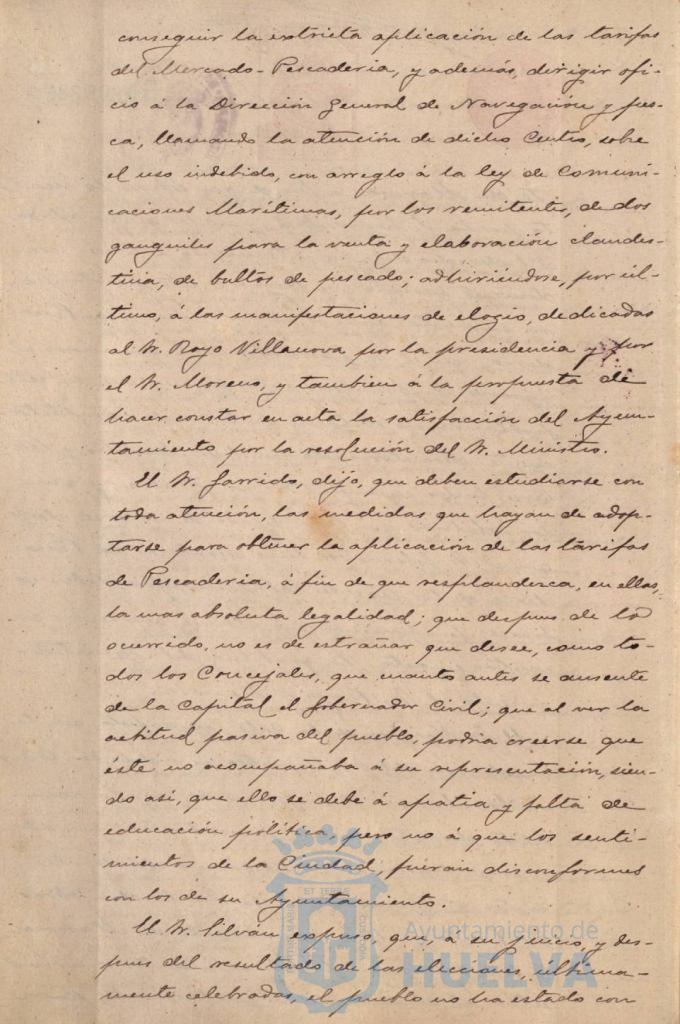 conseguir la extricta aplicación de las tarifas
del Mercado-Pescaderia, y además, dirigir ofi-
cio á la Dirección general de Navegación y pes-
ca, llamando la atención de dicho Centro, sobre
el uso indebido, con arreglo á la ley de Comuni-
caciones Marítimas, por los remitentes, de dos
ganguiles para la venta y elaboración clandes-
tina, de bultos de pescado; adhiriéndose, por úl-
timo, á las manifestaciones de elogio, dedicadas
al Sr. Royo Villanova por la presidencia y por
el Sr. Moreno, y tambien á la propuesta de
hacer constar en acta la satisfacción del Ayun-
tamiento por la resolución del Sr. Ministro.
El Sr. Garrido, dijo, que deben estudiarse con
toda atención, las medidas que hayan de adop-
tarse para obtener la aplicación de las tarifas
de Pescaderia, á fin de que resplandezca, en ellas,
la mas absoluta legalidad; que despues de lo
ocurrido, no es de estrañar que desee, como to-
dos los Concejales, que cuanto antes se ausente
de la Capital el Gobernador Civil; que al ver la
actitud pasiva del pueblo, podria creerse que
éste no acompañaba á su representación, sien-
do así, que ello se debe á apatia y falta de
educación política, pero no á que los senti-
mientos de la Ciudad, fueran disconformes
con los de su Ayuntamiento.
El Sr. Silván expuso, que, á su juicio, y des-
pues del resultado de las elecciones, última-
mente celebradas, el pueblo no ha estado con
Ayuntamiento de
HUELVA